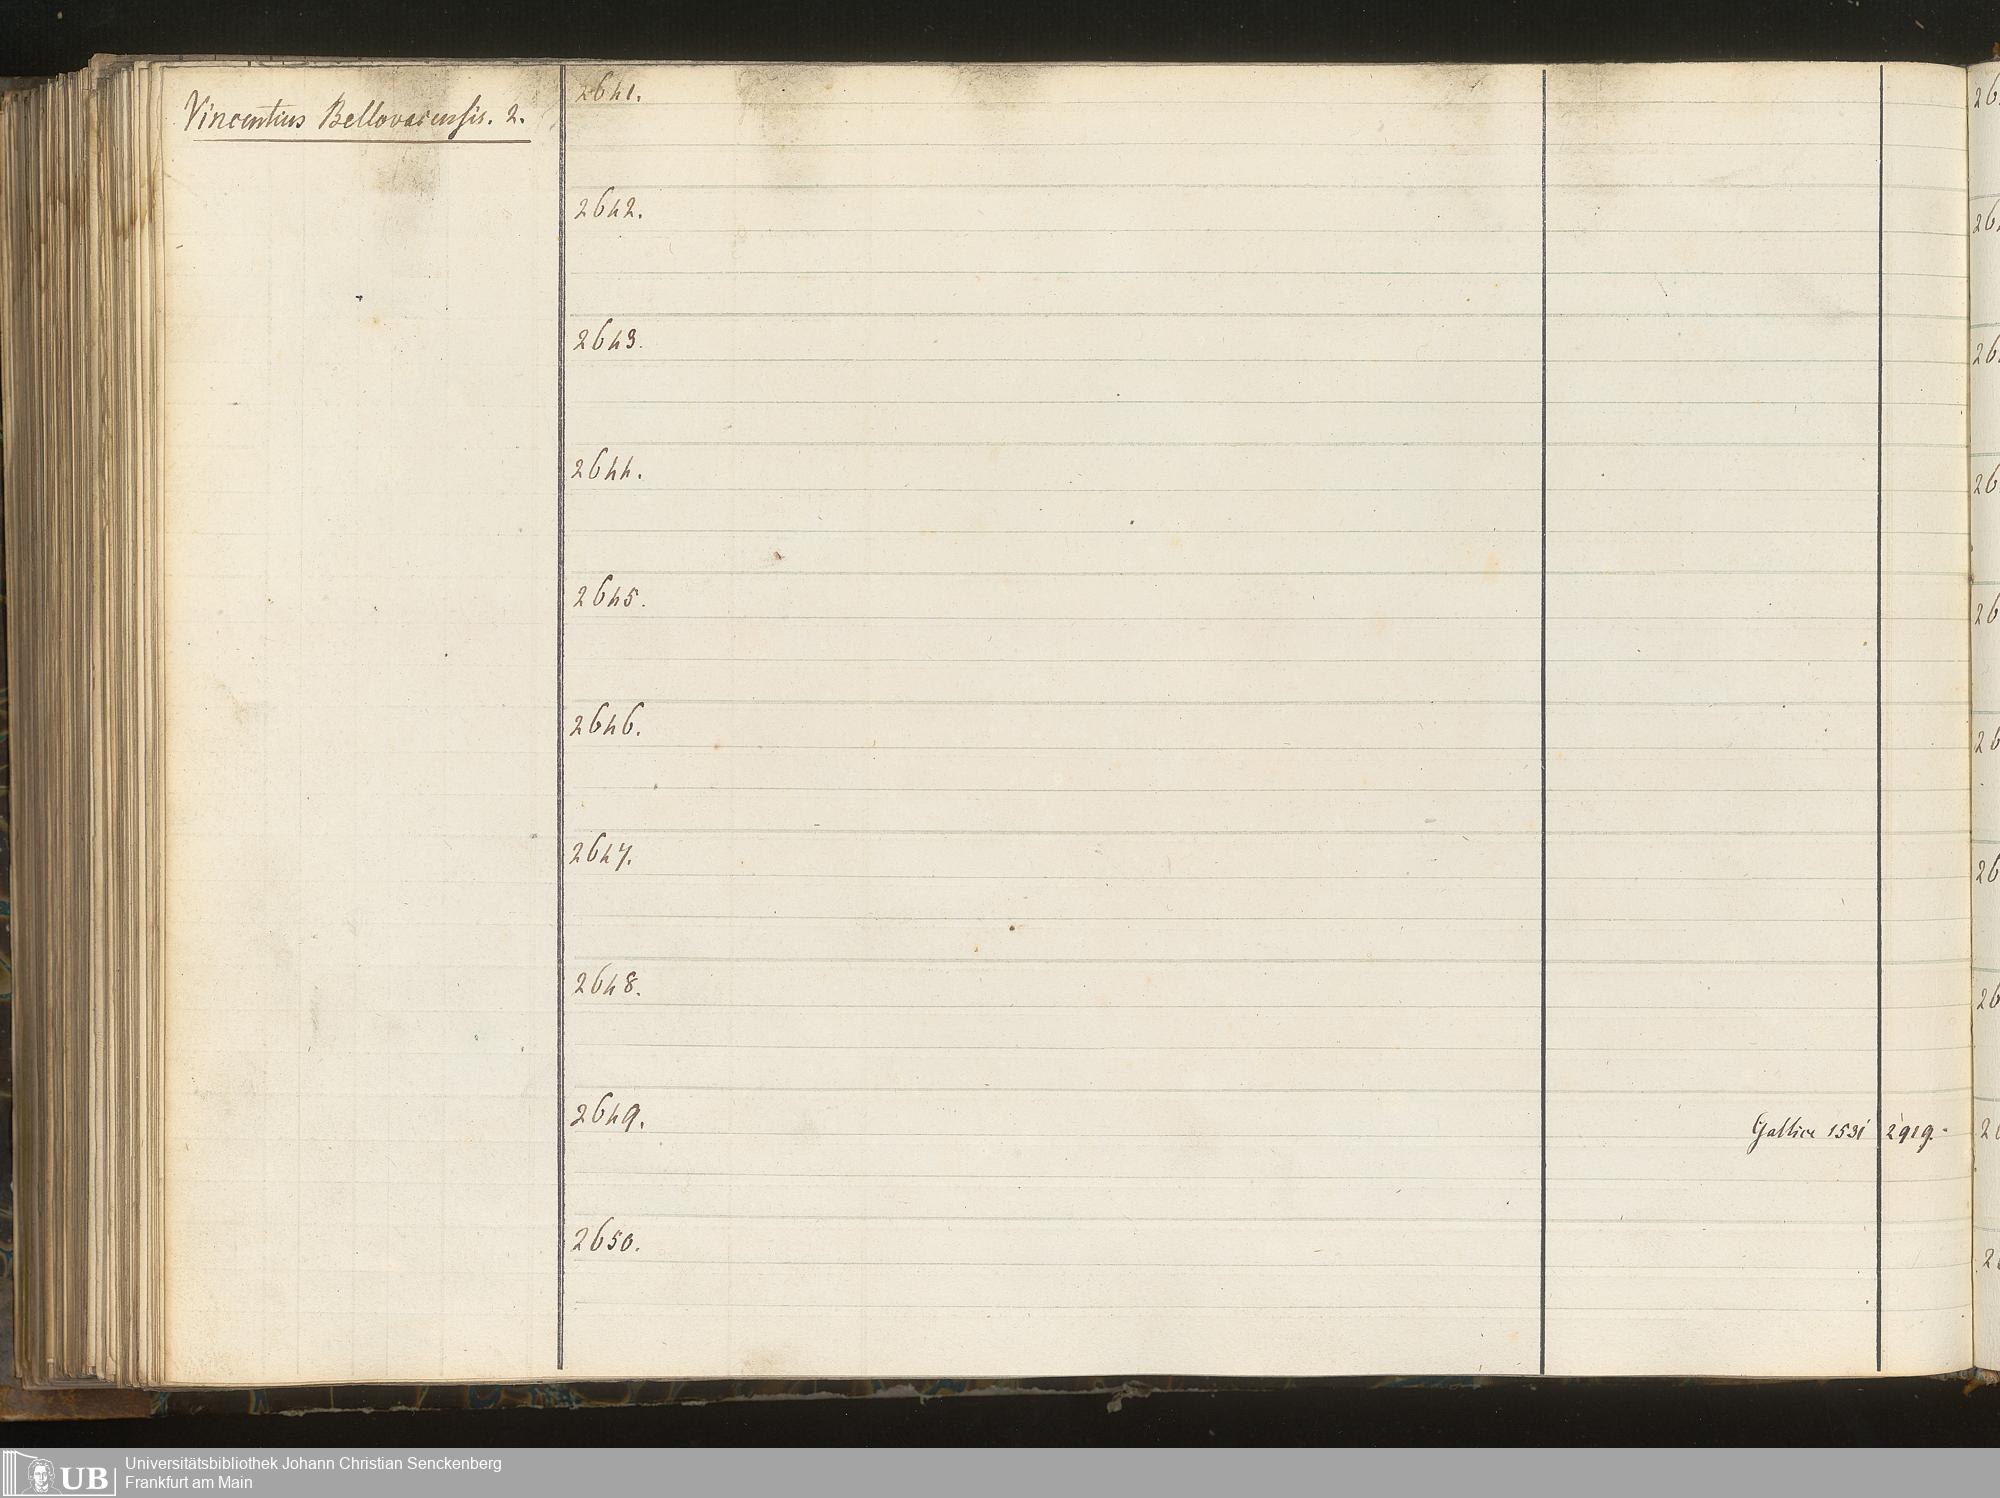 Vincentius Bellovacensis. 2.
2641.
2642.
2643.
2644.
2645.
2646.
2647.
2648.
2649.
Gallice 1531 2919.
2650.
26
26
26
26
26
26
26
26
2
2
UB Universitätsbibliothek Johann Christian Senckenberg
Frankfurt am Main